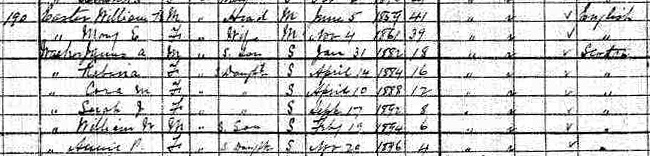 190 Easter William H M Head M June 5 1859 41 " " ✓ English
" Mary E F Wife M Nov 4 1861 39 " " ✓ "
James A M S. Son S Jan 31 1882 18 " " ✓ Scotch
" F S Daught S April 14 1884 16 " " ✓ "
" Cora M F " S April 10 1888 12 " " ✓ "
" Sarah J F " S Sept 17 1892 8 " " ✓ "
" William M S Son S Feby 19 1894 6 " " ✓ "
" Annie P. F S Daught S Nov 20 1896 4 " " ✓ "